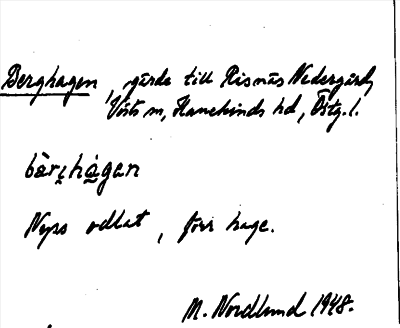 Berghagen, gärde till Risnäs Nedergård,
Västra m, Hanekinds hd, Östg. l.
bàrçhágan
Nyss odlat, förr hage.
M. Nordlund 1948.